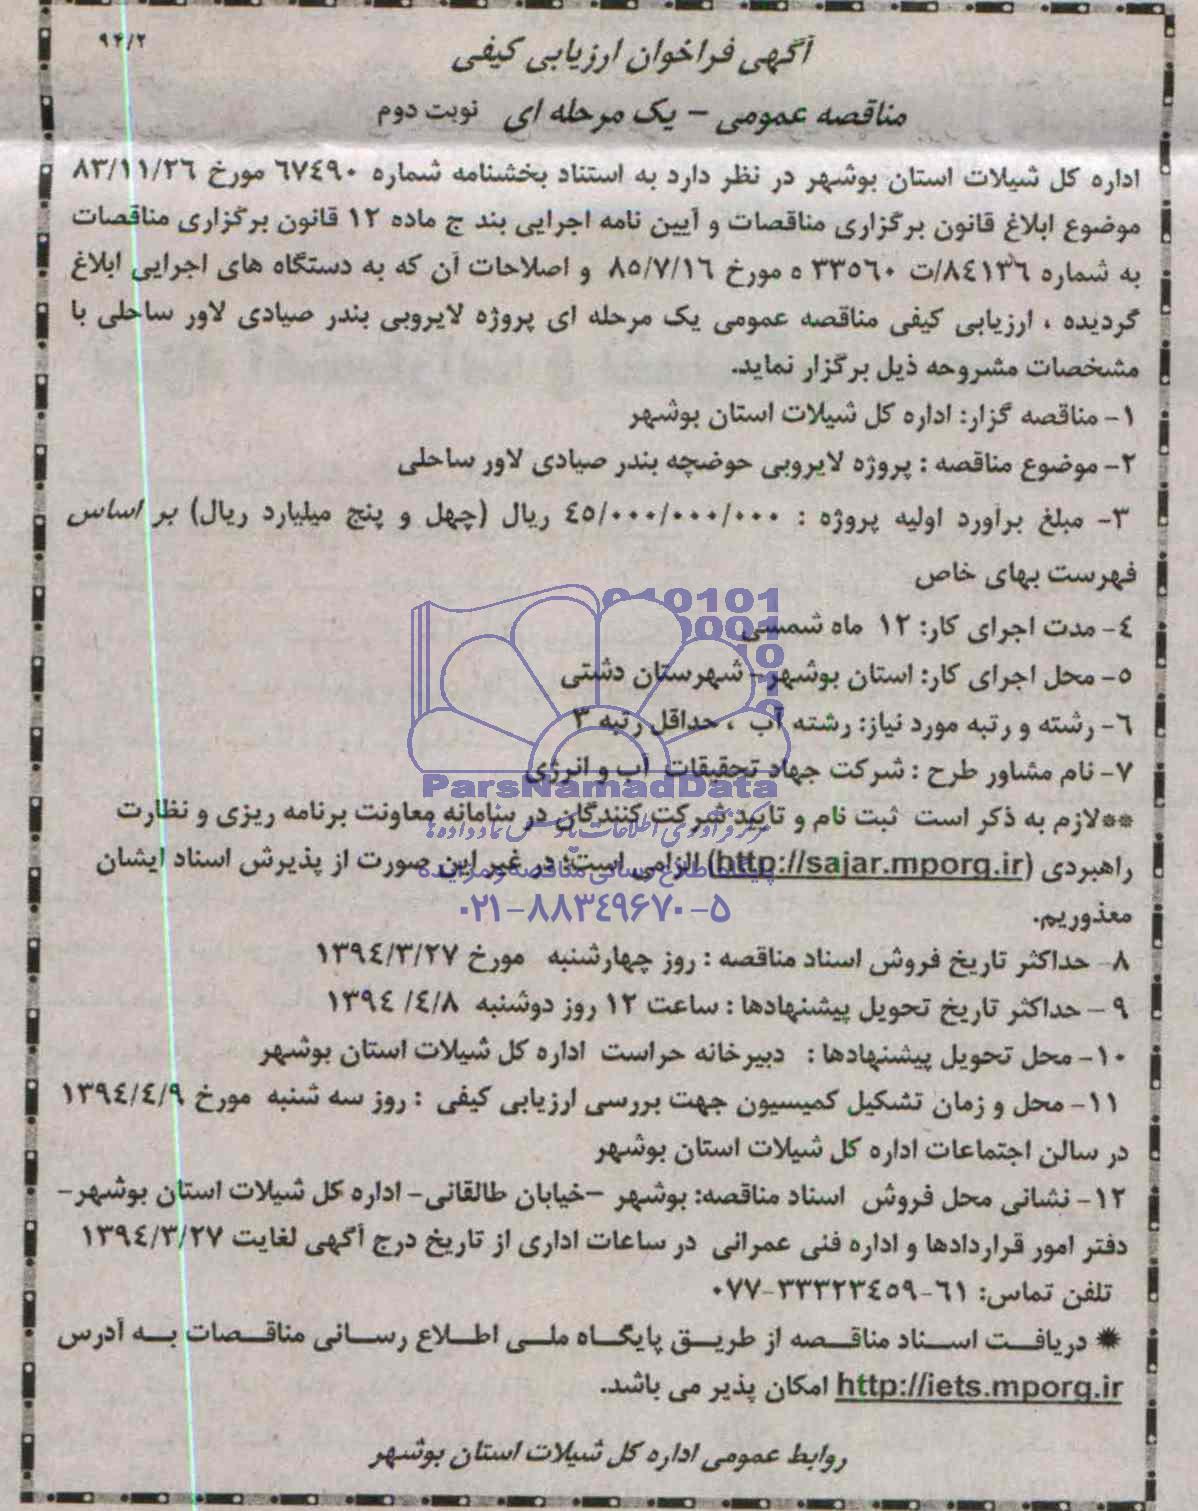 ۹۴/۲
آگهی فراخوان ارزیابی کیفی
مناقصه عمومی – یک مرحله ای نوبت دوم
اداره کل شیلات استان بوشهر در نظر دارد به استناد بخشنامه شماره ٦٧٤٩٠ مورخ ٨٣/١١/٢٦
موضوع ابلاغ قانون برگزاری مناقصات و آیین نامه اجرایی بند ج ماده ١٢ قانون برگزاری مناقصات
به شماره ٨٤١٣٦/ت ٣٣٥٦٠ ه مورخ ٨٥/٧/١٦ و اصلاحات آن که به دستگاه های اجرایی ابلاغ
گردیده ، ارزیابی کیفی مناقصه عمومی یک مرحله ای پروژه لایروبی بندر صیادی لاور ساحلی با
مشخصات مشروحه ذیل برگزار نماید.
١- مناقصه گزار: اداره کل شیلات استان بوشهر
٢- موضوع مناقصه : پروژه لایروبی حوضچه بندر صیادی لاور ساحلی
٣- مبلغ برآورد اولیه پروژه : ٤٥/٠٠٠/٠٠٠/٠٠٠ ریال (چهل و پنج میلیارد ریال) بر اساس
فهرست بهای خاص
٤- مدت اجرای کار: ١٢ ماه شمسی
٥- محل اجرای کار: استان بوشهر- شهرستان دشتی
٦- رشته و رتبه مورد نیاز: رشته آب ، حداقل رتبه ٣
٧- نام مشاور طرح : شرکت جهاد تحقیقات آب و انرژی
ParsNamadData
**لازم به ذکر است ثبت نام و تایید شرکت کنندگان در سامانه معاونت برنامه ریزی و نظارت
مرکز فرآوری اطلاعات پارس نماد داده ها
راهبردی (http://sajar.mporg.ir) الزامی است؛ در غیر این صورت از پذیرش اسناد ایشان
پایگاه اطلاع رسانی مناقصه و مزایده
معذوریم.
۰۲۱-۸۸۳۴۹۶۷۰-۵
٨- حداکثر تاریخ فروش اسناد مناقصه : روز چهارشنبه مورخ ١٣٩٤/٣/٢٧
٩ – حداکثر تاریخ تحویل پیشنهادها : ساعت ١٢ روز دوشنبه ١٣٩٤ /٤/٨
١٠- محل تحویل پیشنهادها : دبیرخانه حراست اداره کل شیلات استان بوشهر
١١- محل و زمان تشکیل کمیسیون جهت بررسی ارزیابی کیفی : روز سه شنبه مورخ ١٣٩٤/٤/٩
در سالن اجتماعات اداره کل شیلات استان بوشهر
١٢- نشانی محل فروش اسناد مناقصه: بوشهر –خیابان طالقانی- اداره کل شیلات استان بوشهر-
دفتر امور قراردادها و اداره فنی عمرانی در ساعات اداری از تاریخ درج آگهی لغایت ١٣٩٤/٣/٢٧
تلفن تماس: ٦١-٣٣٣٢٣٤٥٩-٠٧٧
✸ دریافت اسناد مناقصه از طریق پایگاه ملی اطلاع رسانی مناقصات به آدرس
http://iets.mporg.ir امکان پذیر می باشد.
روابط عمومی اداره کل شیلات استان بوشهر